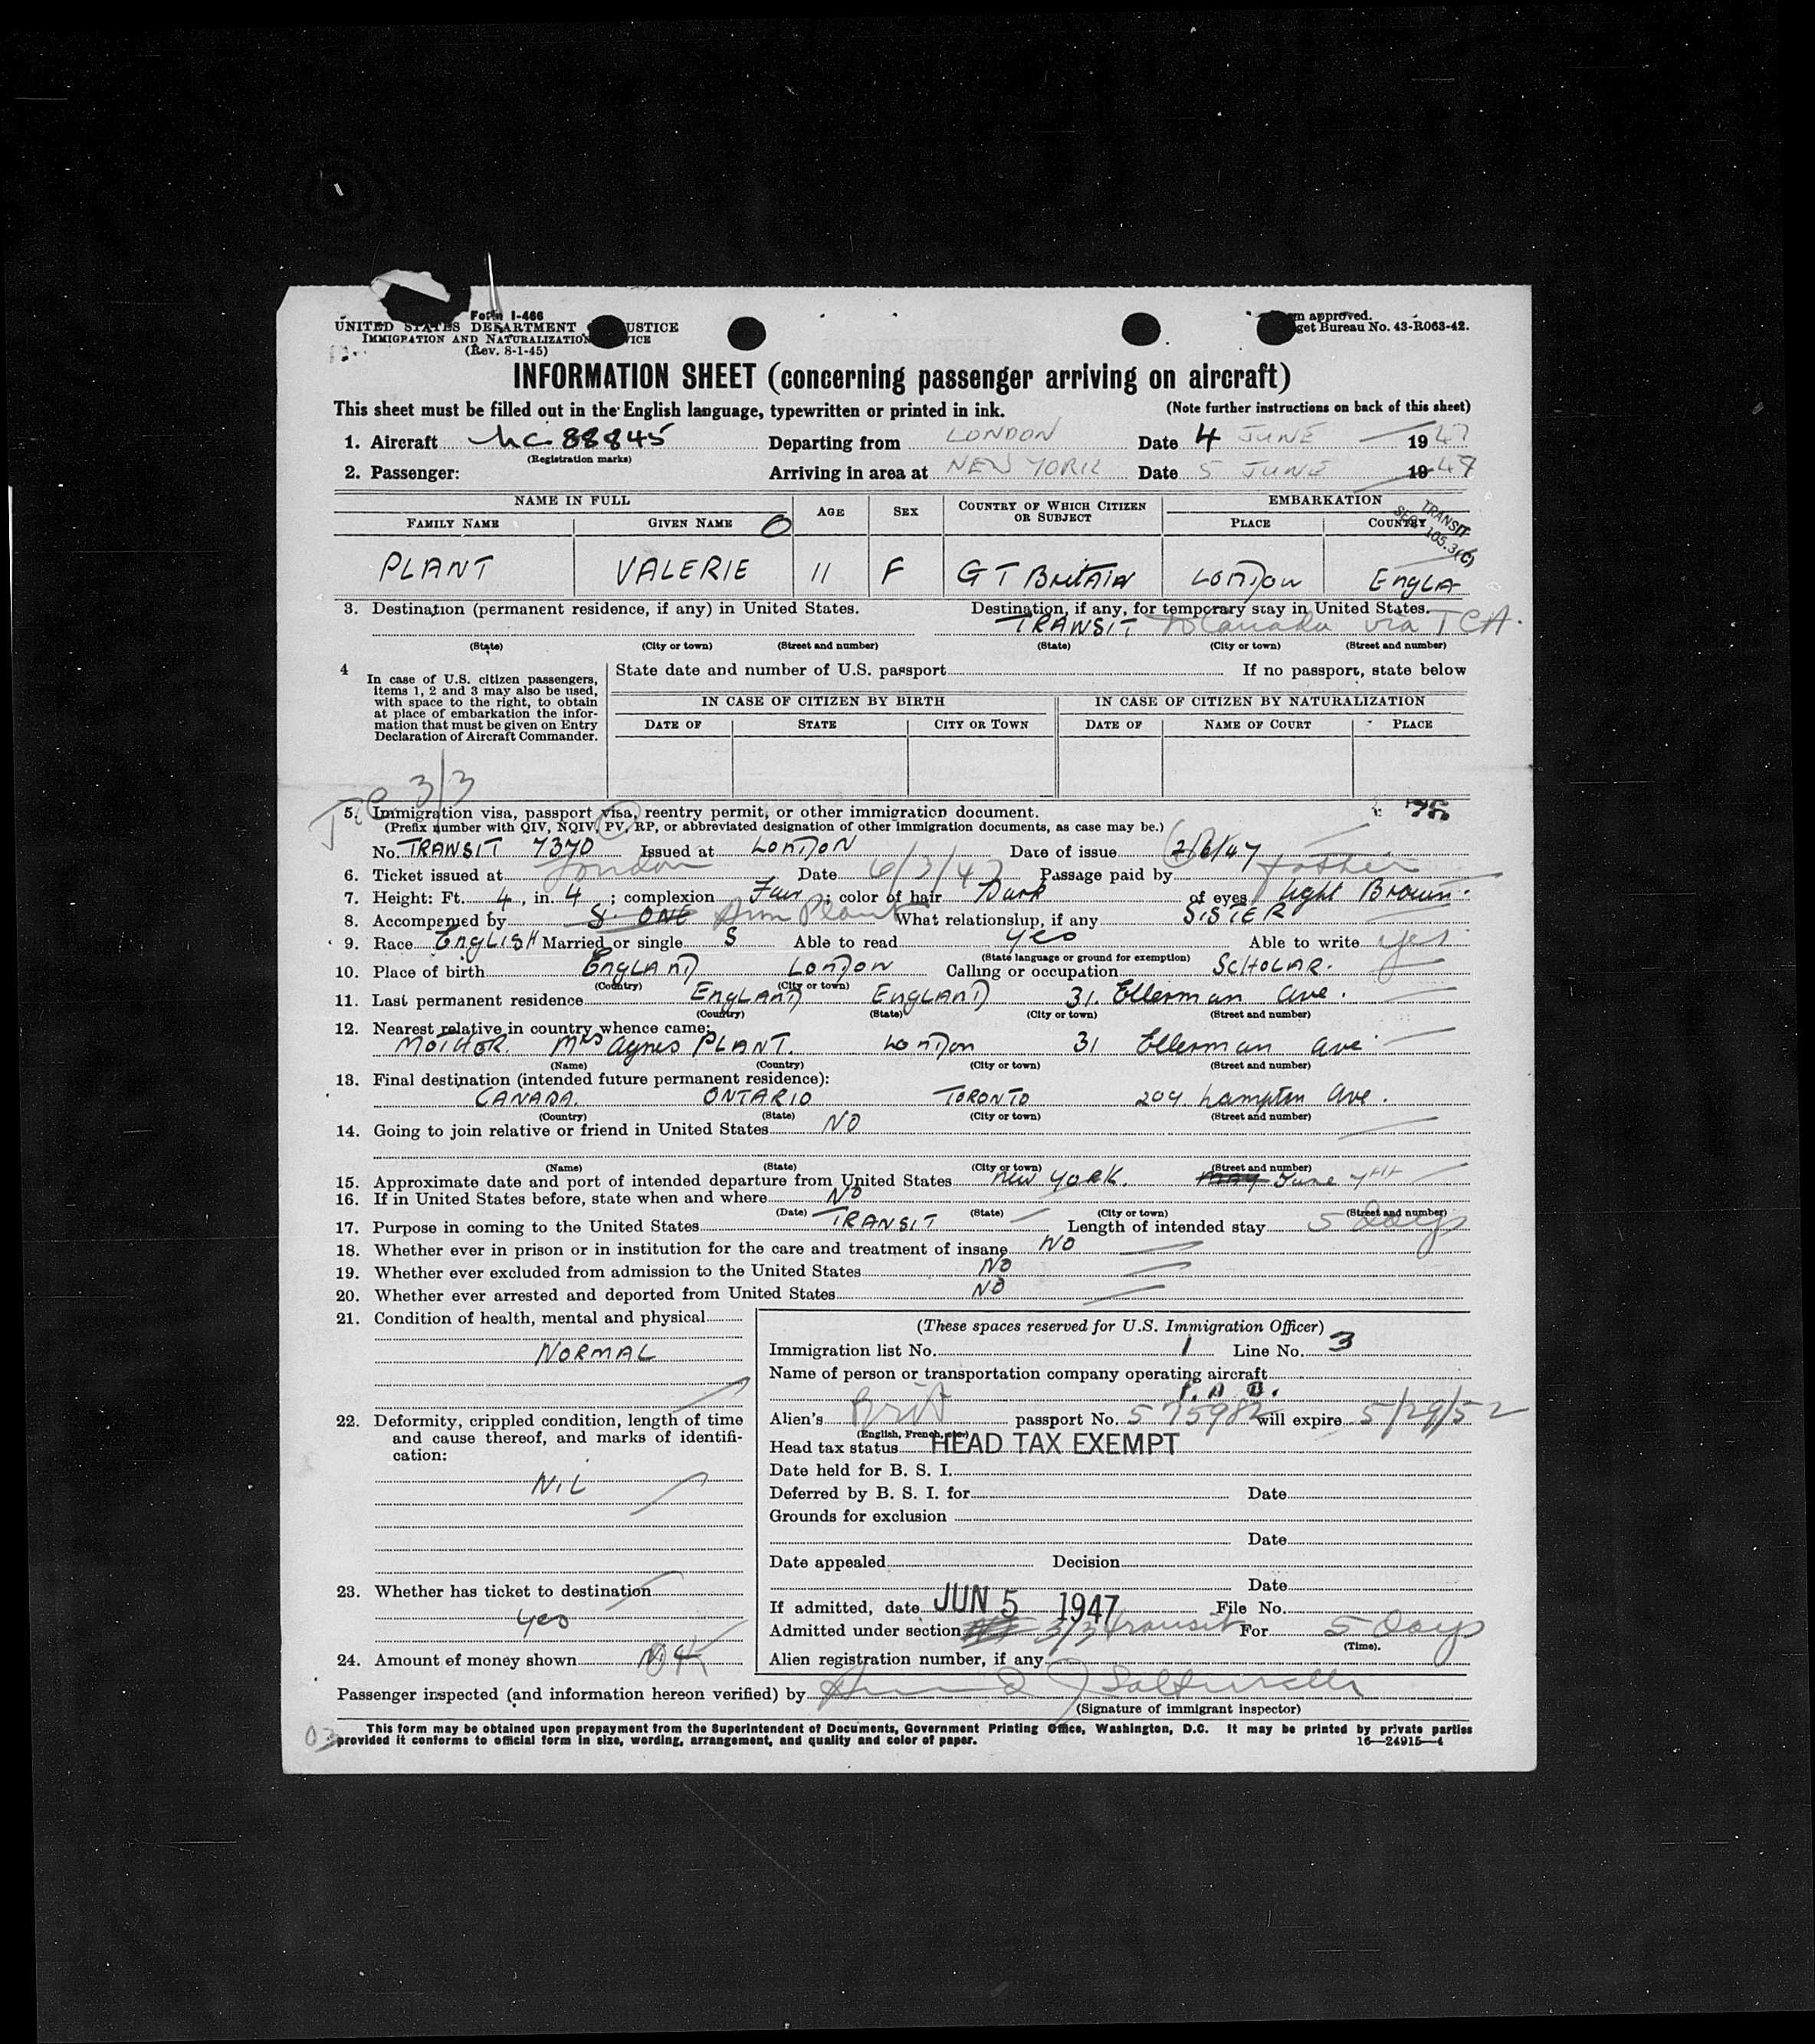 Form I-466
UNITED STATES DEPARTMENT USTICE
IMMIGRATION AND NATURALIZATION VICE
(Rev. 8-1-45)
m approved.
get Bureau No. 43-R063-42.
INFORMATION SHEET (concerning passenger arriving on aircraft)
This sheet must be filled out in the English language, typewritten or printed in ink. (Note further instructions on back of this sheet)
1. Aircraft NC 88845 Departing from LONDON Date 4 JUNE 1947
(Registration marks)
2. Passenger: Arriving in area at NEW YORK Date 5 JUNE 1947
NAME IN FULL AGE SEX COUNTRY OF WHICH CITIZEN OR SUBJECT EMBARKATION
FAMILY NAME GIVEN NAME O PLACE COUNTRY
TRANSIT
SEC. 105.3(C)
PLANT VALERIE 11 F GT BRITAIN LONDON ENGLA
3. Destination (permanent residence, if any) in United States. Destination, if any, for temporary stay in United States.
TRANSIT to Canada via TCA.
(State) (City or town) (Street and number) (State) (City or town) (Street and number)
4 In case of U.S. citizen passengers, items 1, 2 and 3 may also be used, with space to the right, to obtain at place of embarkation the information that must be given on Entry Declaration of Aircraft Commander.
State date and number of U.S. passport If no passport, state below
IN CASE OF CITIZEN BY BIRTH IN CASE OF CITIZEN BY NATURALIZATION
DATE OF STATE CITY OR TOWN DATE OF NAME OF COURT PLACE
3/3
5. Immigration visa, passport visa, reentry permit, or other immigration document.
(Prefix number with QIV, NQIV, PV, RP, or abbreviated designation of other immigration documents, as case may be.)
No. TRANSIT 7370 Issued at LONDON Date of issue 2/6/47
6. Ticket issued at London Date 6/3/47 Passage paid by father
7. Height: Ft. 4, in. 4; complexion Fair; color of hair Dark of eyes light Brown.
8. Accompanied by Ann Plant What relationship, if any SISTER
9. Race ENGLISH Married or single S Able to read yes Able to write yes
(State language or ground for exemption)
10. Place of birth ENGLAND LONDON Calling or occupation SCHOLAR.
(Country) (City or town)
11. Last permanent residence ENGLAND ENGLAND 31. Ellerman Ave.
(Country) (State) (City or town) (Street and number)
12. Nearest relative in country whence came:
MOTHER. MRS Agnes PLANT. London 31 Ellerman Ave
(Name) (Country) (City or town) (Street and number)
13. Final destination (intended future permanent residence):
CANADA. ONTARIO TORONTO 209 Hampton Ave.
(Country) (State) (City or town) (Street and number)
14. Going to join relative or friend in United States NO
(Name) (State) (City or town) (Street and number)
15. Approximate date and port of intended departure from United States New York. June
16. If in United States before, state when and where NO
(Date) (State) (City or town) (Street and number)
17. Purpose in coming to the United States TRANSIT Length of intended stay 5 Days
18. Whether ever in prison or in institution for the care and treatment of insane NO
19. Whether ever excluded from admission to the United States NO
20. Whether ever arrested and deported from United States NO
21. Condition of health, mental and physical
NORMAL
22. Deformity, crippled condition, length of time and cause thereof, and marks of identification:
NIL
23. Whether has ticket to destination
Yes
24. Amount of money shown
(These spaces reserved for U.S. Immigration Officer)
Immigration list No. 1 Line No. 3
Name of person or transportation company operating aircraft
Alien's Brit passport No. 575982 will expire 5/29/52
(English, French, etc.)
Head tax status HEAD TAX EXEMPT
Date held for B. S. I.
Deferred by B. S. I. for Date
Grounds for exclusion
Date
Date appealed Decision
Date
If admitted, date JUN 5 1947 File No.
Admitted under section 3/3 transit For 5 Days
(Time).
Alien registration number, if any
Passenger inspected (and information hereon verified) by
(Signature of immigrant inspector)
This form may be obtained upon prepayment from the Superintendent of Documents, Government Printing Office, Washington, D.C. It may be printed by private parties
provided it conforms to official form in size, wording, arrangement, and quality and color of paper. 16—24915-4